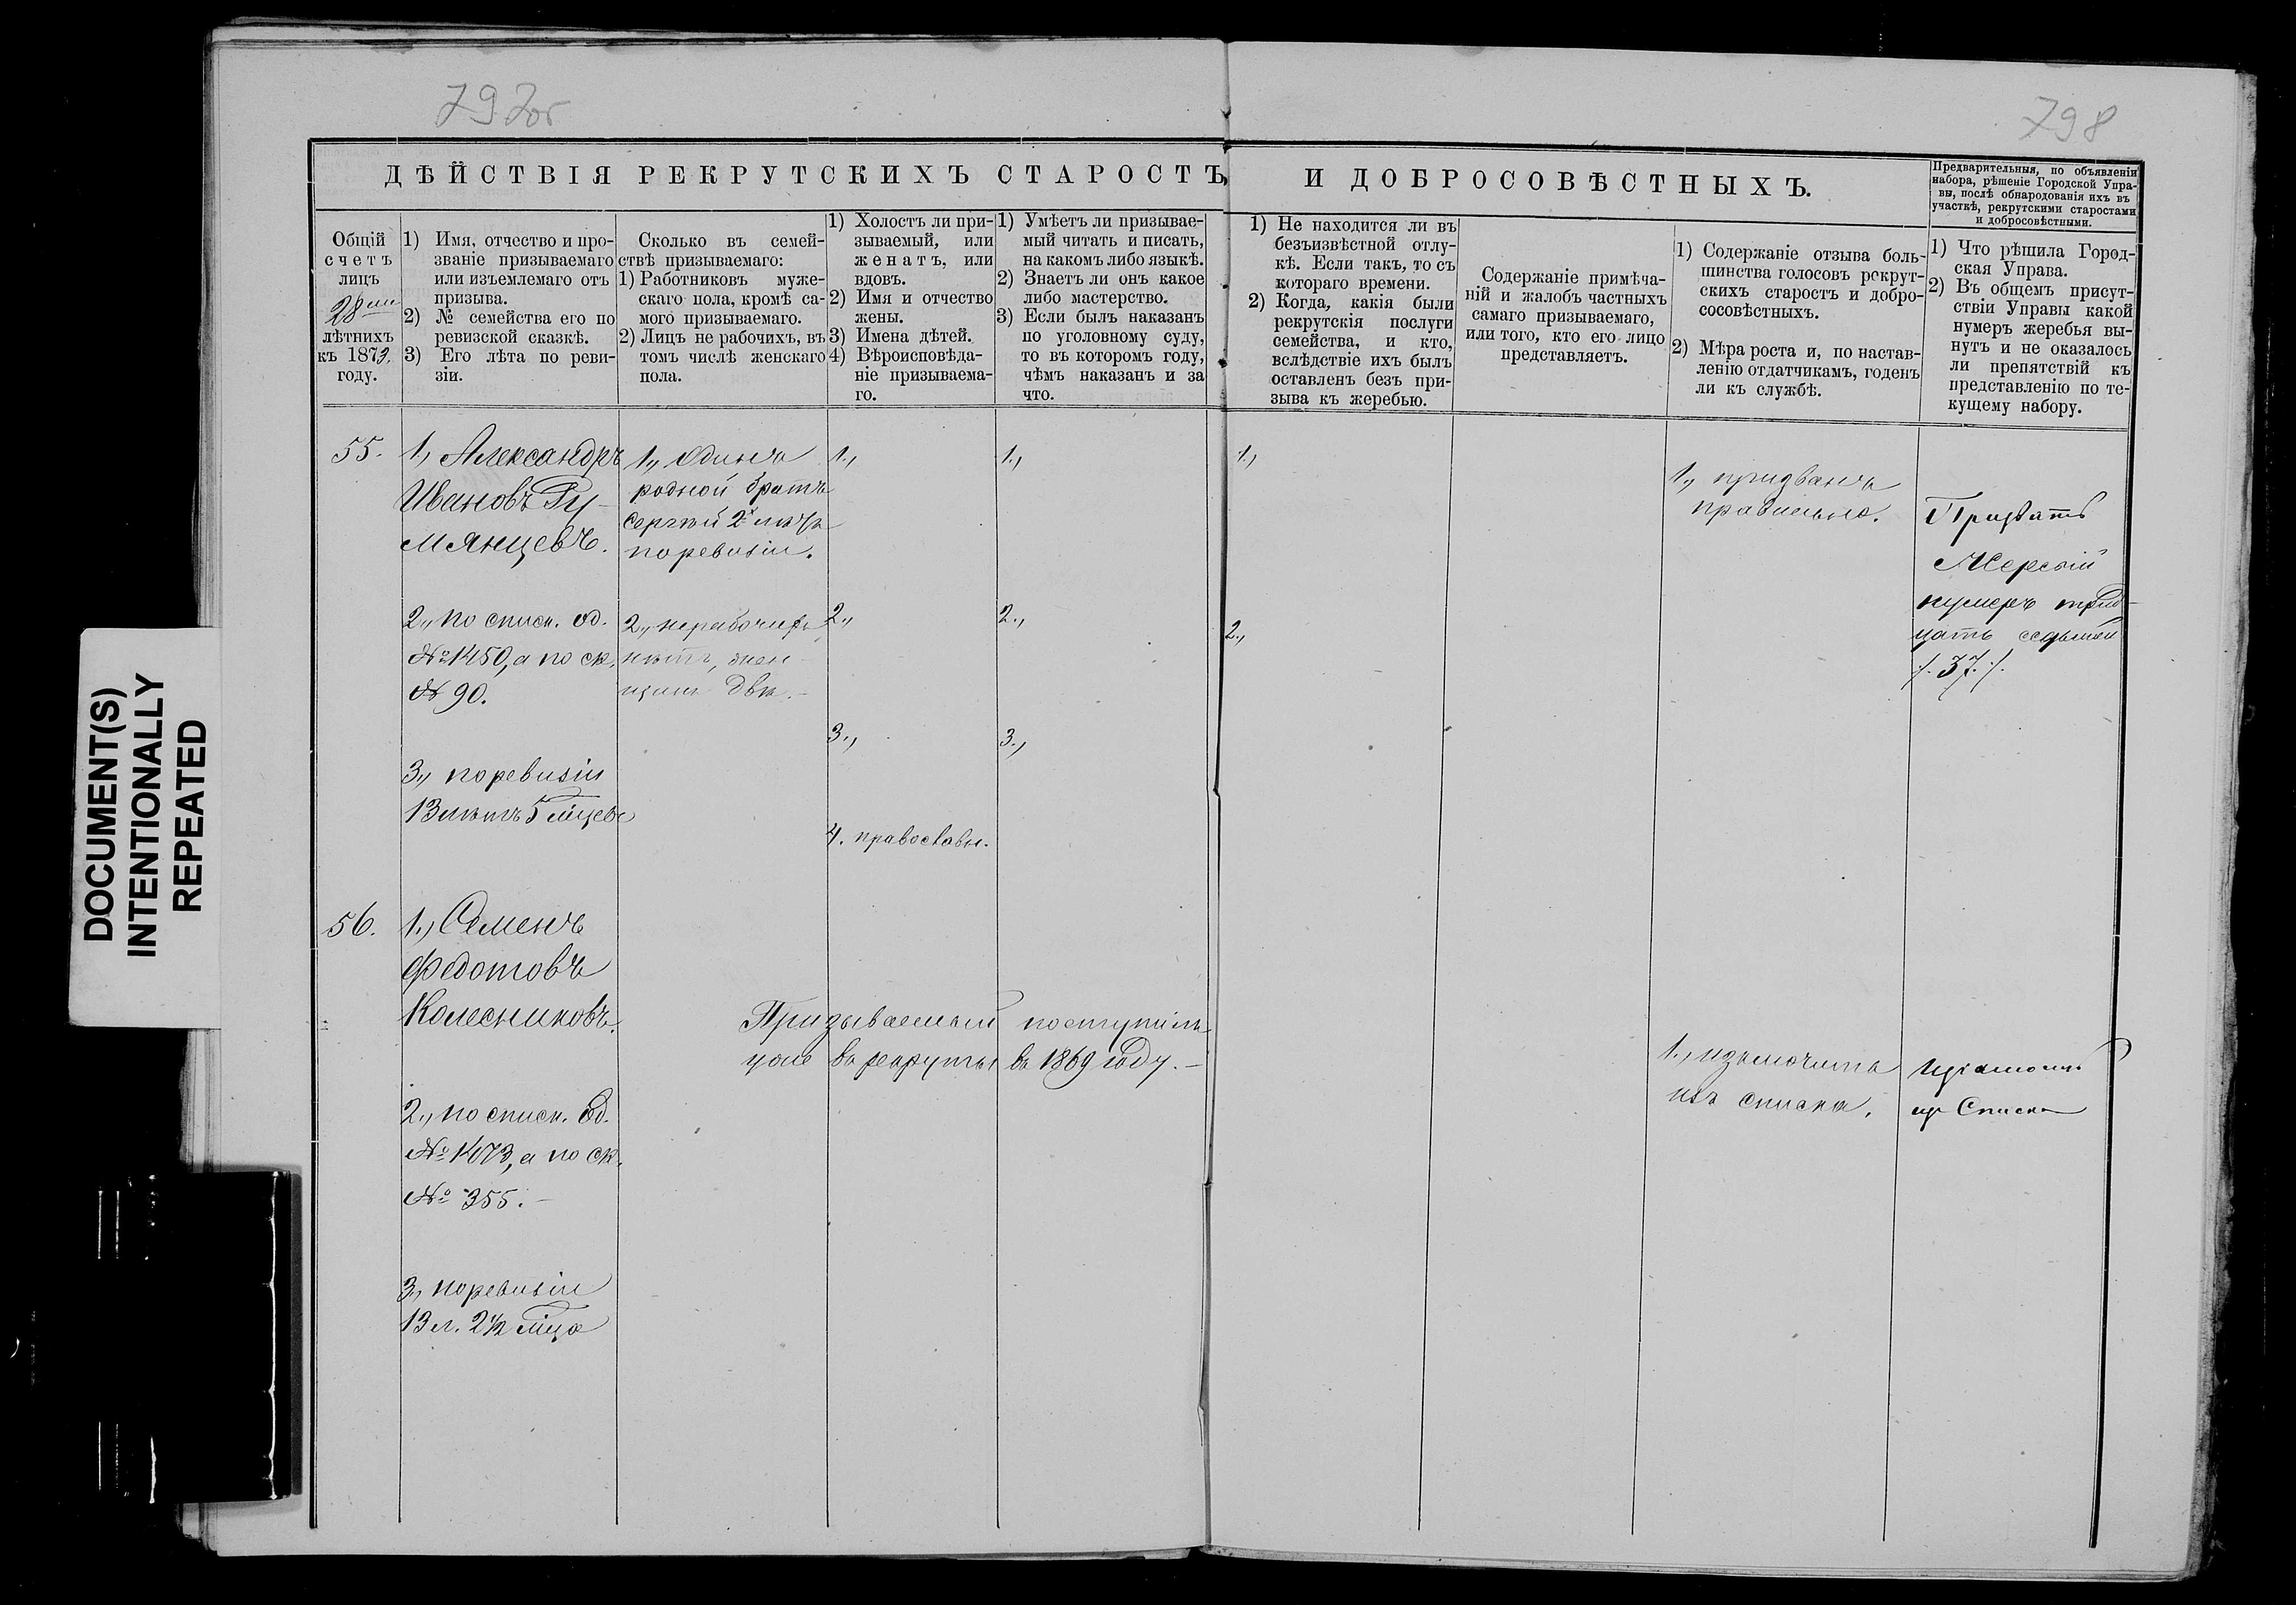 797об
798
ДѢЙСТВІЯ РЕКРУТСКИХЪ СТАРОСТЪ
И ДОБРОСОВѢСТНЫХЪ.
Предварительныя, по объявленіи
набора, рѣшеніе Городской Упра-
вы, послѣ обнародованія ихъ въ
участкѣ, рекрутскими старостами
и добросовѣстными.
Общій
счетъ
лицъ
28ми
лѣтнихъ
къ 1873.
году.
1) Имя, отчество и про-
званіе призываемаго
или изъемлемаго отъ
призыва.
2) № семейства его по
ревизской сказкѣ.
3) Его лѣта по реви-
зіи.
Сколько въ семей-
ствѣ призываемаго:
1) Работниковъ муже-
скаго пола, кромѣ са-
мого призываемаго.
2) Лицъ не рабочихъ, въ
томъ числѣ женскаго
пола.
1) Холостъ ли при-
зываемый, или
женатъ, или
вдовъ.
2) Имя и отчество
жены.
3) Имена дѣтей.
4) Вѣроисповѣда-
ніе призываема-
го.
1) Умѣетъ ли призывае-
мый читать и писать,
на какомъ либо языкѣ.
2) Знаетъ ли онъ какое
либо мастерство.
3) Если былъ наказанъ
по уголовному суду,
то въ которомъ году,
чѣмъ наказанъ и за
что.
1) Не находится ли въ
безъизвѣстной отлу-
кѣ. Если такъ, то съ
котораго времени.
2) Когда, какія были
рекрутскія послуги
семейства, и кто,
вслѣдствіе ихъ былъ
оставленъ безъ при-
зыва къ жеребью.
Содержаніе примѣча-
ній и жалобъ частныхъ
самаго призываемаго,
или того, кто его лицо
представляетъ.
1) Содержаніе отзыва боль-
шинства голосовъ рекрут-
скихъ старостъ и добро-
сосовѣстныхъ.
2) Мѣра роста и, по настав-
ленію отдатчикамъ, годенъ
ли къ службѣ.
1) Что рѣшила Город-
ская Управа.
2) Въ общемъ присут-
ствіи Управы какой
нумеръ жеребья вы-
нутъ и не оказалось
ли препятствій къ
представленію по те-
кущему набору.
55.
1., Александръ
Ивановъ Ру-
мянцевъ.
2., по списк. од.
№ 1450, а по ск.
№ 90.
3., поревизіи
13 лѣтъ 5 мцевъ
1., Одинъ
родной братъ
Сергѣй 2х лѣтъ
поревизіи.
2., нерабочихъ
нѣтъ, жен-
щинъ двѣ.-
1.,
2.,
3.,
4. православн.
1.,
2.,
3.,
1.,
2.,
1., призванъ
правильно.
Призвать
Жеребій
нумеръ трид-
цать седьмой
/. 37. /.
56.
1., Семенъ
Федотовъ
Колесниковъ.
2., по списк. Од.
№ 1473, а по ск.
№ 355.-
3., поревизіи
13 л. 2½ мца
Призываемый поступилъ
уже въ рекруты въ 1869 году.-
1., изключить
изъ списка.
изъ Списка
DOCUMENT(S)
INTENTIONALLY
REPEATED